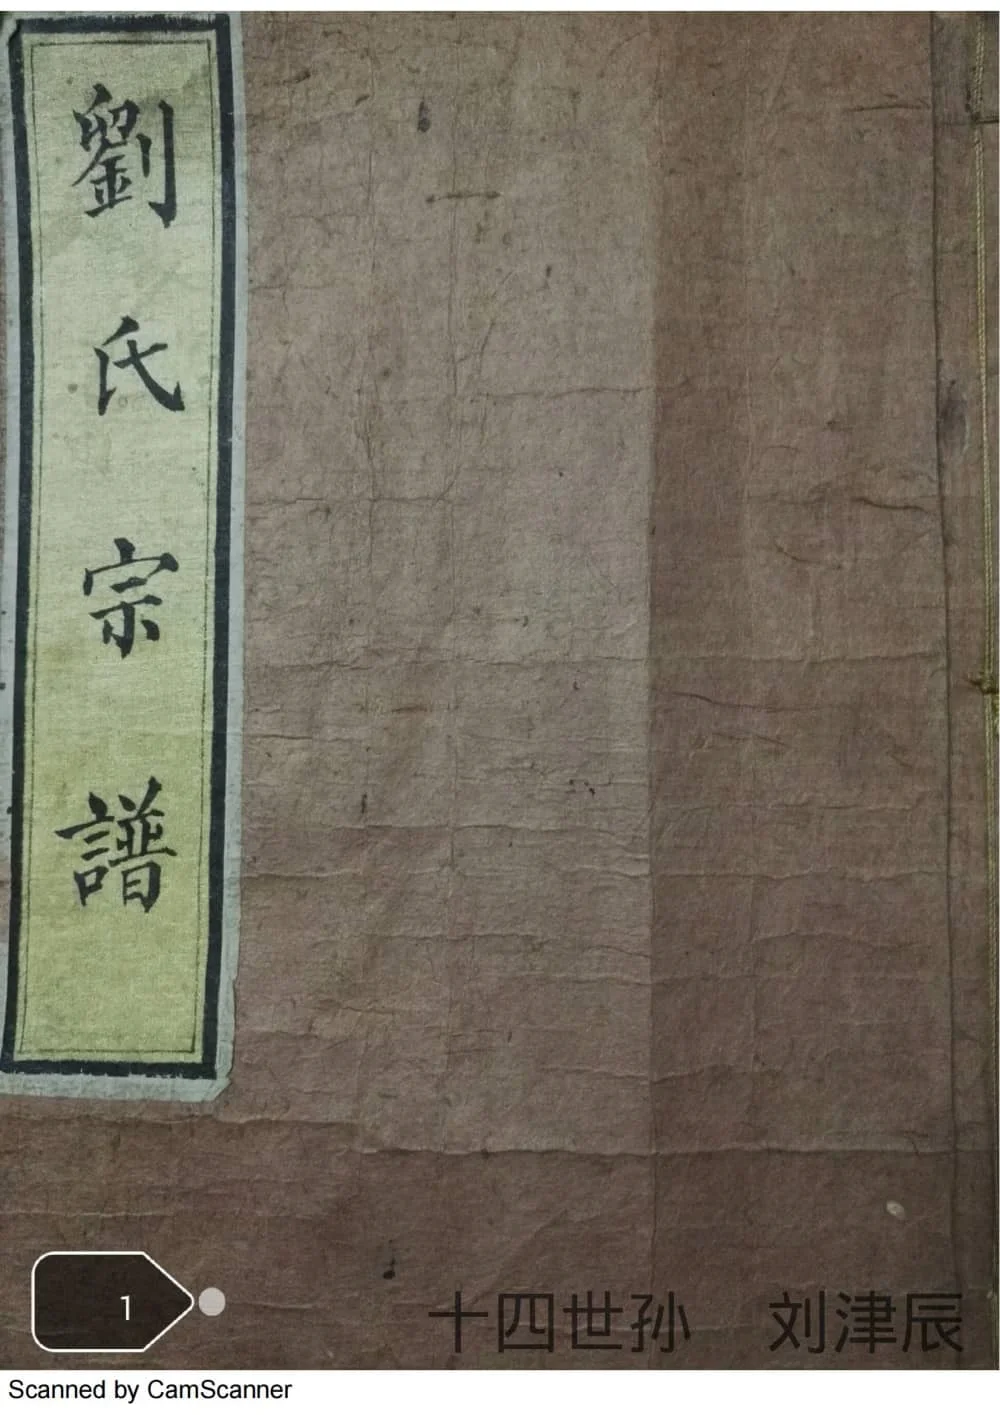 劉氏宗譜
1
十四世孙 刘津辰
Scanned by CamScanner